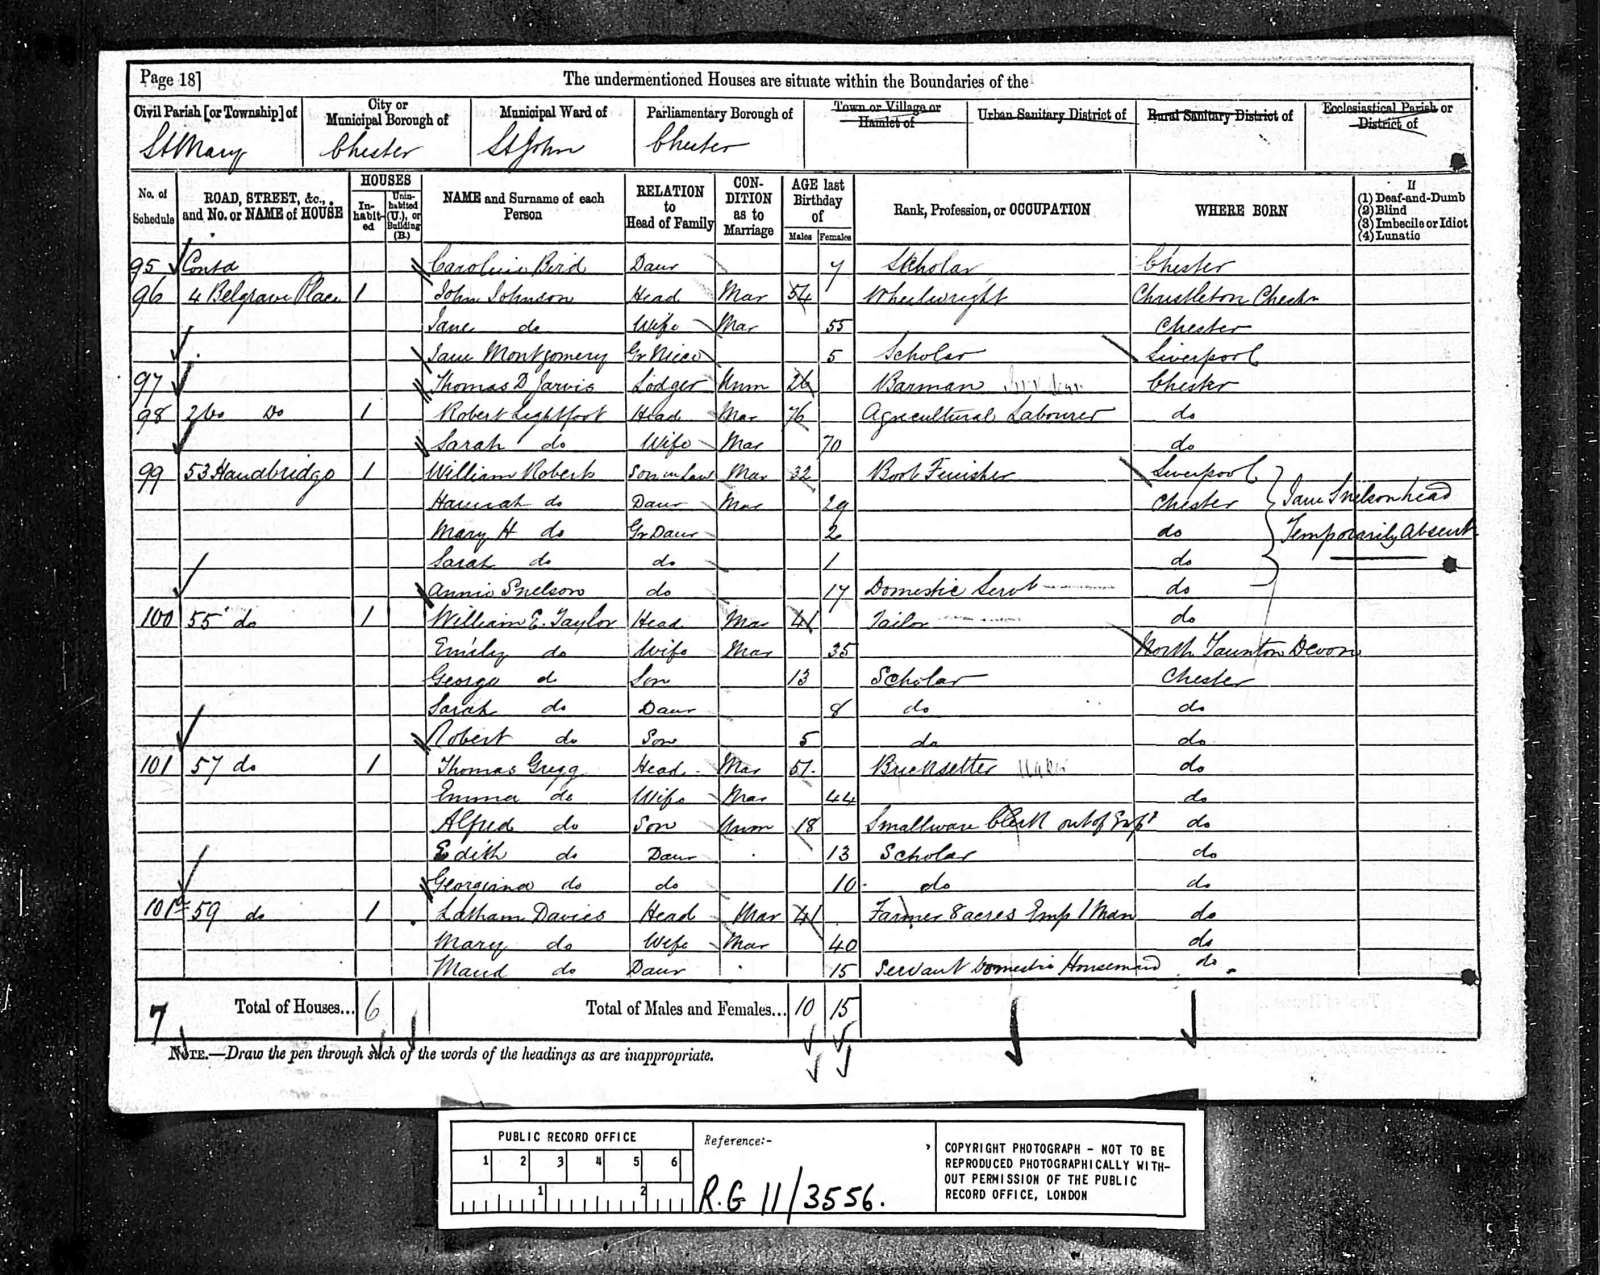 Page 18]
The undermentioned Houses are situate within the Boundaries of the
Civil Parish [or Township] of City or Municipal Borough of Municipal Ward of Parliamentary Borough of Town or Village or Hamlet of Urban Sanitary District of Rural Sanitary District of Ecclesiastical Parish or District of
St Mary Chester St John Chester
No. of Schedule ROAD, STREET, &c., and No. or NAME of HOUSE HOUSES Inhabited Uninhabited (U.), or Building (B.) NAME and Surname of each Person RELATION to Head of Family CONDITION as to Marriage AGE last Birthday of Males Females Rank, Profession, or OCCUPATION WHERE BORN If (1) Deaf-and-Dumb (2) Blind (3) Imbecile or Idiot (4) Lunatic
95 Contd Caroline Bird Daur 7 Scholar Chester
96 4 Belgrave Place 1 John Johnson Head Mar 54 Wheelwright Christleton Chestr
Jane do Wife Mar 55 Chester
Jane Montgomery Gr Niece 5 Scholar Liverpool
97 Thomas D Jarvis Lodger Unm 26 Barman Chester
98 2 do Do 1 Robert Lightfoot Head Mar 76 Agricultural Labourer do
Sarah do Wife Mar 70 do
99 53 Handbridge 1 William Roberts Son in Law Mar 32 Boot Finisher Liverpool
Hannah do Daur Mar 29 Chester Jane Snelson head
Mary H do Gr Daur 2 do Temporarily Absent
Sarah do do 1 do
Annie Snelson do 17 Domestic Servt do
100 55 do 1 William E. Taylor Head Mar 41 Tailor do
Emily do Wife Mar 35 North Taunton Devon
George d Son 13 Scholar Chester
Sarah do Daur 8 do do
Robert do Son 5 do do
101 57 do 1 Thomas Gregg Head Mar 51 Bricksetter do
Emma do Wife Mar 44 do
Alfred do Son Unm 18 Smallware Clerk out of Emp do
Edith do Daur 13 Scholar do
Georgiana do do 10 do do
101 59 do 1 Latham Davies Head Mar 41 Farmer 8 acres Emp 1 Man do
Mary do Wife Mar 40 do
Maud do Daur 15 Servant Domestic Housemaid do
7 Total of Houses... 6 Total of Males and Females... 10 15
NOTE.—Draw the pen through such of the words of the headings as are inappropriate.
PUBLIC RECORD OFFICE
1 2 3 4 5 6
1 2
Reference:-
R.G 11/3556.
COPYRIGHT PHOTOGRAPH - NOT TO BE
REPRODUCED PHOTOGRAPHICALLY WITH-
OUT PERMISSION OF THE PUBLIC
RECORD OFFICE, LONDON